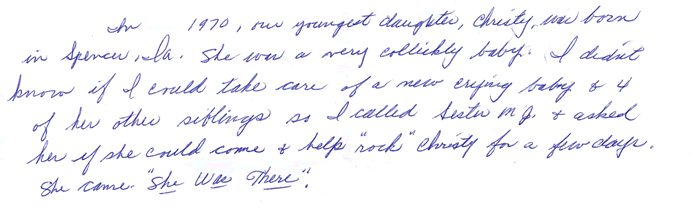 In 1970, our youngest daughter, Christy, was born
in Spencer, Ia. She was a very collickly baby. I didn't
know if I could take care of a new crying baby & 4
of her other siblings so I called Sister M J. & asked
her if she could come & help "rock" Christy for a few days.
She came. "She Was There".